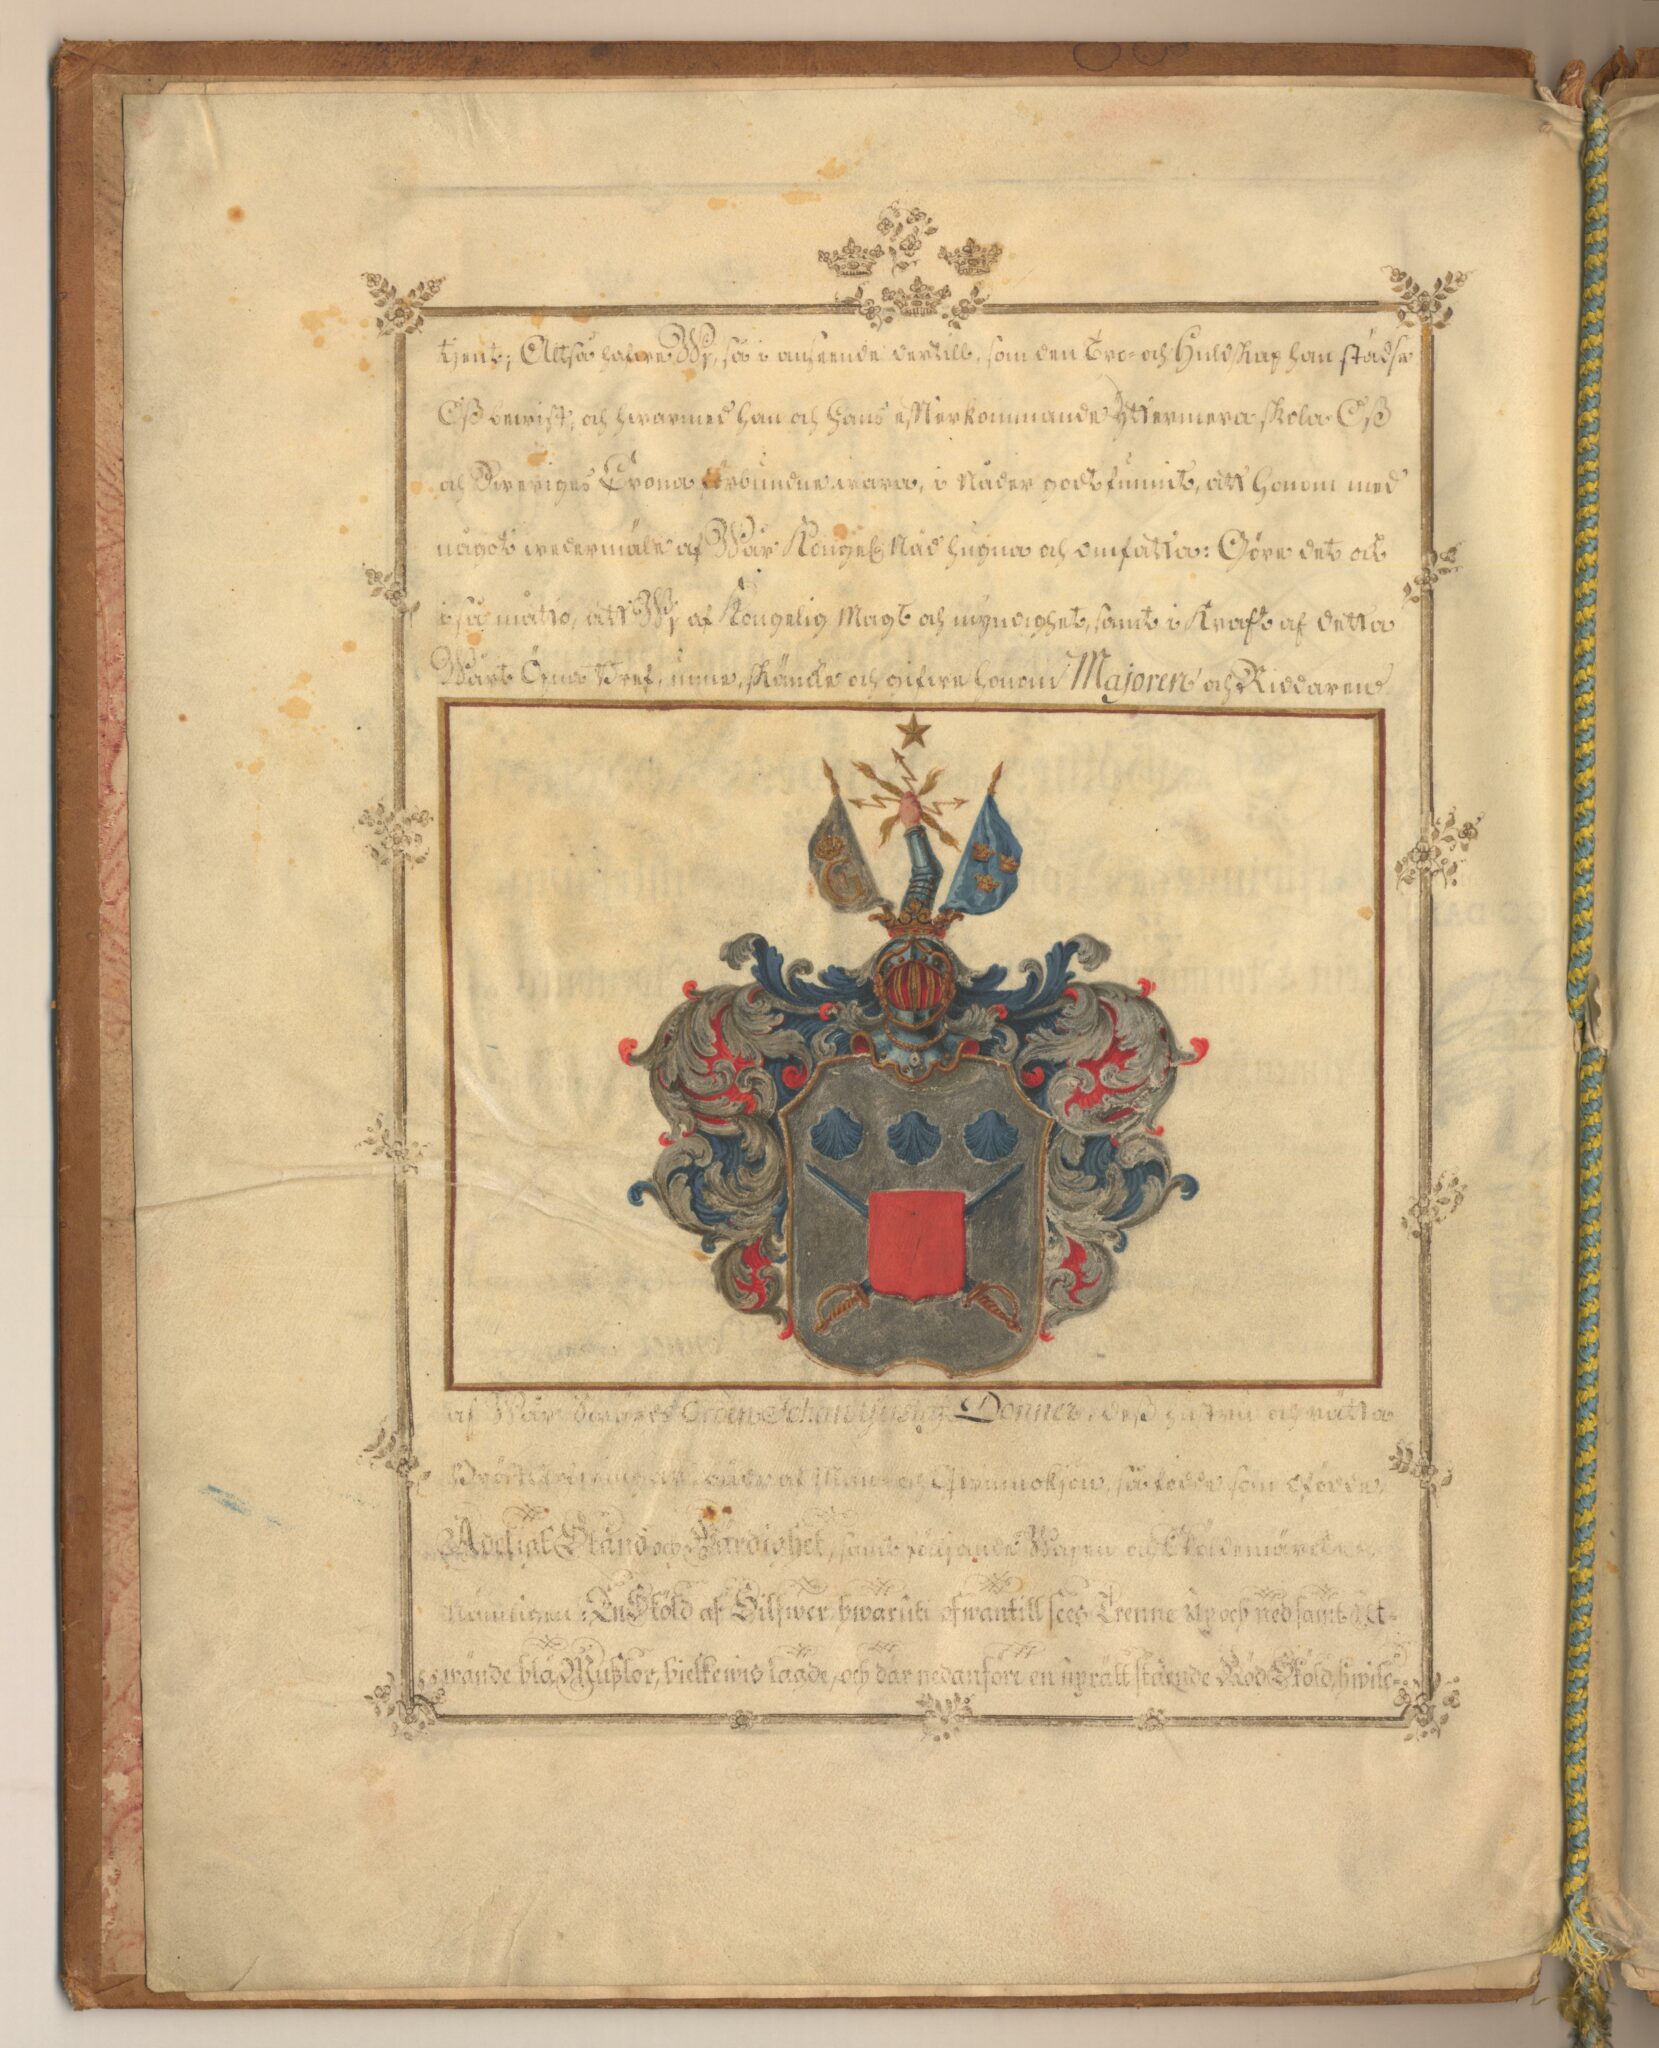 tjent; Altså hafwe Wj, så i anseende dertill, som den Tro- och Huldskap han städse
Oß bewist, och hwarmed han och hans efterkommande yttermera skola Oß
och Sweriges Crona förbundne wara, i Nåder godtfunnit, att honom med
något wedermäle af Wår Kongel. Nåd hugna och omfatta: Göre det och
i så matto, att Wj af Kongelig Magt och myndighet, samt i Kraft af detta
Wårt Öpna Bref, unne, skänke och gifwe honom Majoren och Riddaren
G
af Wår Swärds Orden Johan Gustaf Donner, deß hustru och rätta
af Man- och Qwinnokjön, så födde som ofödde,
Adeligt Stånd och Wärdighet, samt följande Wapen och Sköldemärcke
nämligen: En Sköld af Silfwer, hwaruti ofwantill sees Trenne up och ned samt ut-
wände blå Mußlor, bielkewis lagde, och där nedanföre en uprätt stående Röd Sköld, hwilc-